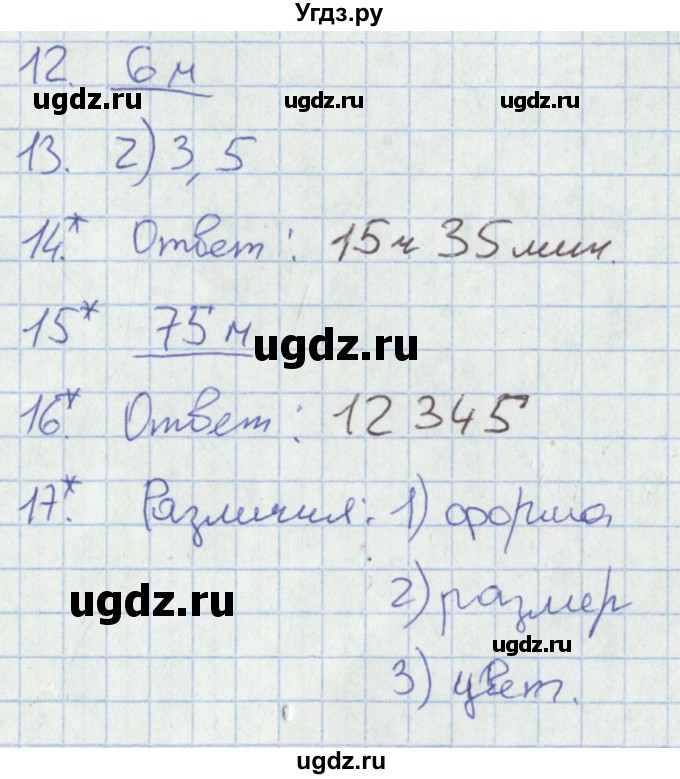 Угдз.ру
12. 6 м
ugdz.ru ugdz.ru ugdz.ru
13. 2) 3, 5
14.* Ответ: 15 ч 35 мин.
15* 75 м
ugdz.ru
16.* Ответ: 12 345
17.* Различия: 1) форма
ugdz.ru
2) размер
ugdz.ru
3) цвет.
ugdz.ru